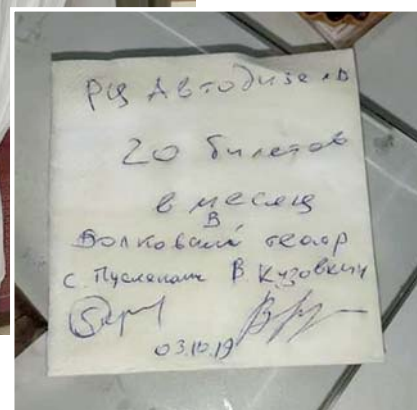 РЦ Автодизель
20 билетов
в месяц
в
Волковский театр
В. Кузовкин
03.10.19